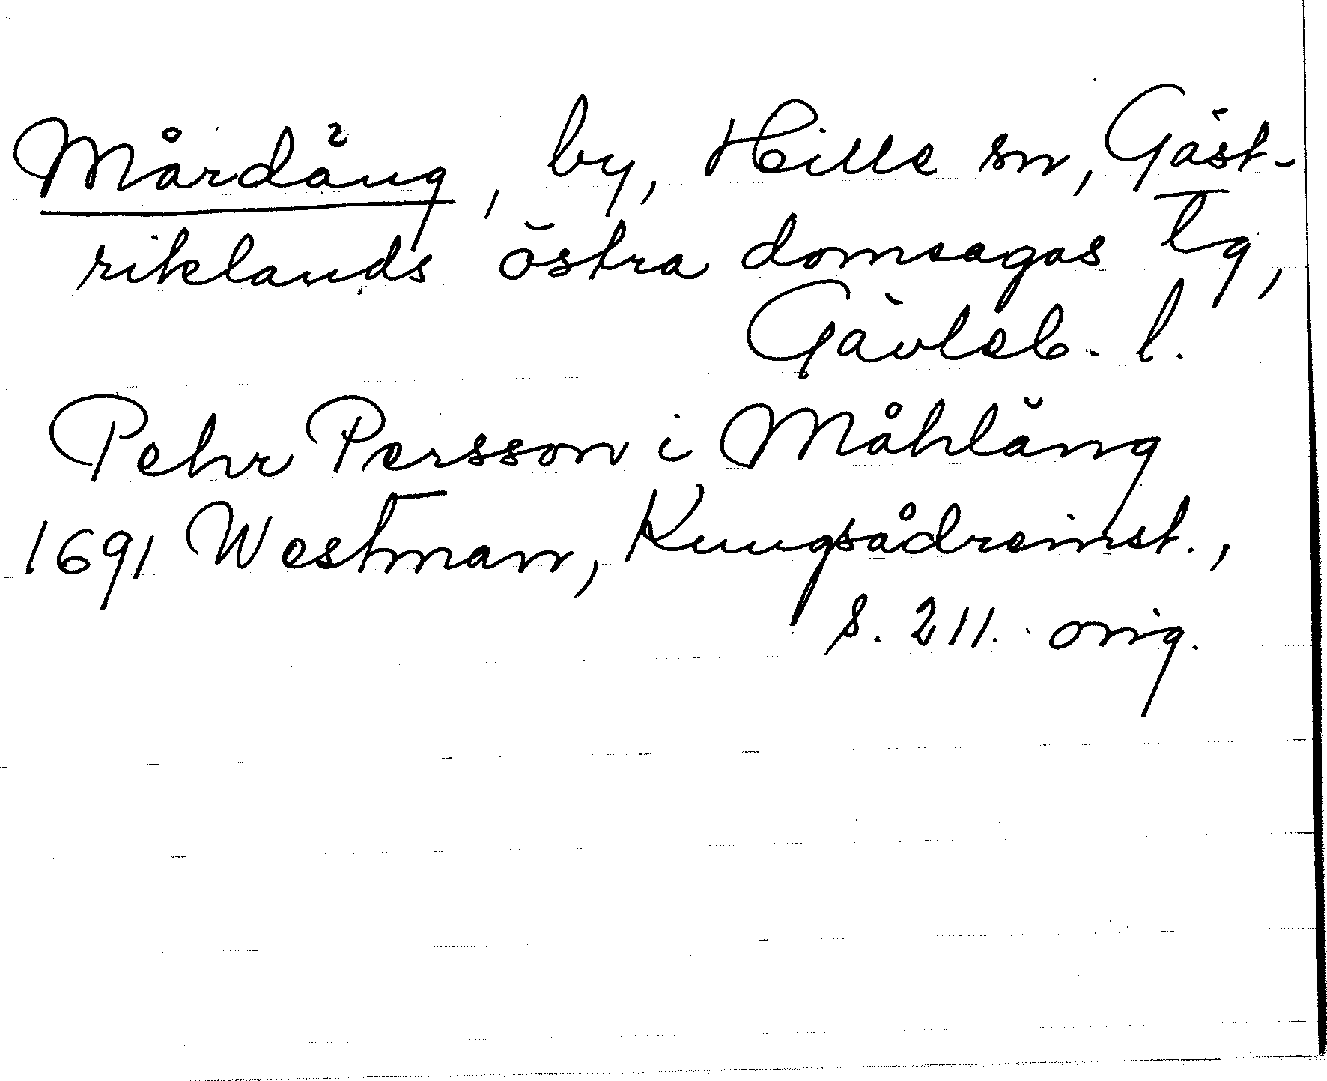 Mårdäng, by, Hille sn, Gäst-
riklands östra domsagas tg,
Gävleb. l.
Pehr Persson i Måhläng
1691 Westman, Kungsådreinst.,
s. 211. orig.